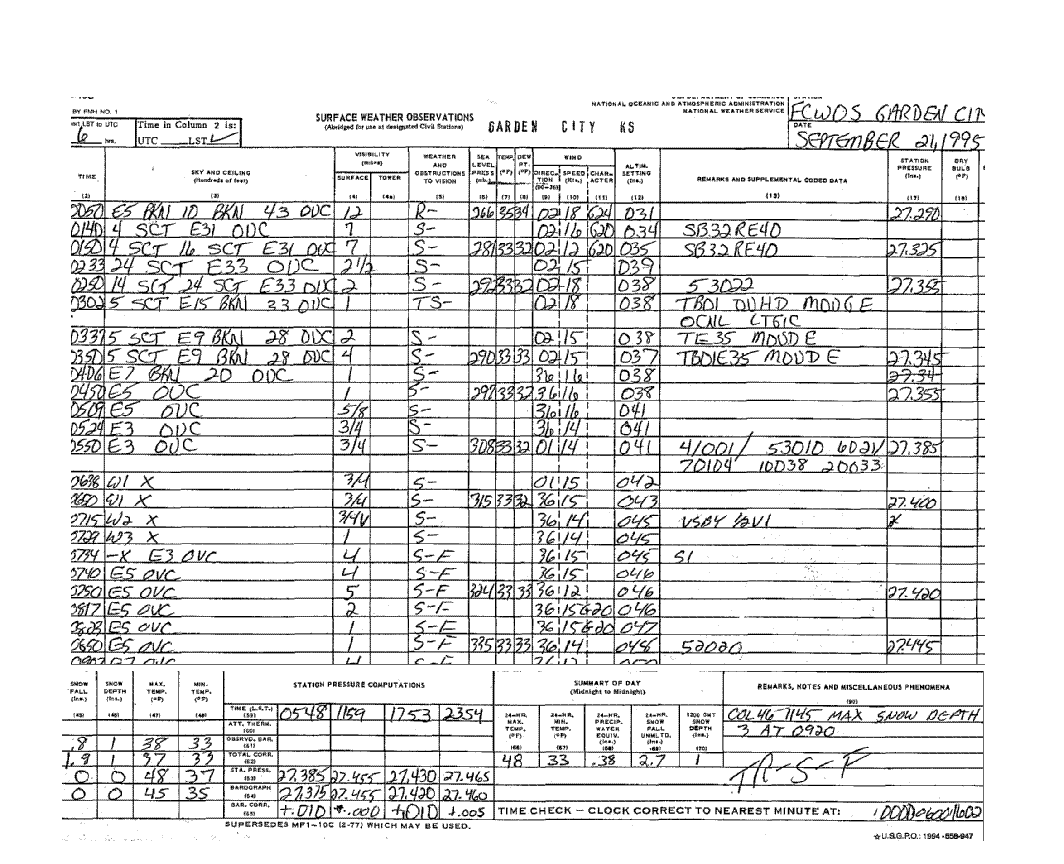 NATIONAL OCEANIC AND ATMOSPHERIC ADMINISTRATION
NATIONAL WEATHER SERVICE
SURFACE WEATHER OBSERVATIONS
(Abridged for use at designated Civil Stations)
GARDEN CITY KS
LST to UTC
6 hrs.
Time in Column 2 is:
UTC LST ✓
ECWOS GARDEN CIT
DATE
SEPTEMBER 21, 1995
TIME SKY AND CEILING (Hundreds of feet) VISIBILITY (miles) SURFACE TOWER WEATHER AND OBSTRUCTIONS TO VISION SEA LEVEL PRESS (mb.) TEMP. (°F) DEW PT. (°F) WIND DIRECTION SPEED (Kts.) CHARACTER ALTIM. SETTING (Ins.) REMARKS AND SUPPLEMENTAL CODED DATA STATION PRESSURE (Ins.) DRY BULB (°F)
(2) (3) (4) (4a) (5) (6) (7) (8) (9) (10) (11) (12) (13) (17) (18)
E5 BKN 10 BKN 43 OVC 12 R- 266 35 34 02 18 G24 031 27.290
0140 4 SCT E31 OVC 7 S- 02 16 G20 034 SB32 RE40
0150 4 SCT 16 SCT E31 OVC 7 S- 281 33 32 02 12 G20 035 SB32RE40 27.325
0233 24 SCT E33 OVC 2 1/2 S- 02 15 039
0250 14 SCT 24 SCT E33 OVC 2 S- 292 33 32 02 18 038 53022 27.355
0302 5 SCT E15 BKN 33 OVC 1 TS- 02 18 038 TB01 OVHD MOVG E
OCNL LTGIC
0337 5 SCT E9 BKN 28 OVC 2 S- 02 15 038 TE35 MOVD E
0350 5 SCT E9 BKN 28 OVC 4 S- 290 33 33 02 15 037 TB01E35 MOVD E 27.345
0406 E7 BKN 20 OVC 1 S- 36 16 038 27.34
0450 E5 OVC 1 S- 292 33 32 36 16 038 27.355
0509 E5 OVC 5/8 S- 36 16 041
0524 E3 OVC 3/4 S- 36 14 041
0550 E3 OVC 3/4 S- 308 33 32 01 14 041 4/001/ 53010 6021/ 27.385
70104 10038 20033
0638 W1 X 3/4 S- 01 15 042
0650 W1 X 3/4 S- 315 33 32 36 15 043 27.400
0715 W2 X 3/4V S- 36 14 045 VSBY 1/2V1
0729 W3 X 1 S- 36 14 045
0734 -X E3 OVC 4 S-F 36 15 045 S1
0740 E5 OVC 4 S-F 36 15 046
0750 E5 OVC 5 S-F 324 33 33 36 12 046 27.420
0817 E5 OVC 2 S-F 36 15 G20 046
E5 OVC 1 S-F 36 15 G20 047
E5 OVC 1 S-F 335 33 33 36 14 048 52020 27.445
SNOW FALL (Ins.) SNOW DEPTH (Ins.) MAX. TEMP. (°F) MIN. TEMP. (°F)
(45) (46) (47) (48)
.8 1 38 33
1.9 1 37 33
0 0 48 37
0 0 45 35
STATION PRESSURE COMPUTATIONS
TIME (L.S.T.) (59) 0548 1159 1753 2354
ATT. THERM. (60)
OBSRVD. BAR. (61)
TOTAL CORR. (62)
STA. PRESS. (63) 27.385 27.455 27.430 27.465
BAROGRAPH (64) 27.375 27.455 27.420 27.460
BAR. CORR. (65) +.010 .000 +.010 +.005
SUMMARY OF DAY
(Midnight to Midnight)
24-HR. MAX. TEMP. (°F) 24-HR. MIN. TEMP. (°F) 24-HR. PRECIP. WATER EQUIV. (Ins.) 24-HR. SNOW FALL UNMLTD. (Ins.) 1200 GMT SNOW DEPTH (Ins.)
(66) (67) (68) (69) (70)
48 33 .38 2.7 1
REMARKS, NOTES AND MISCELLANEOUS PHENOMENA
(90)
COL46 1145 MAX SNOW DEPTH
3 AT 0920
TR-S-F
TIME CHECK – CLOCK CORRECT TO NEAREST MINUTE AT:
SUPERSEDES MF1-10C (2-77) WHICH MAY BE USED.
☆U.S.G.P.O.: 1994-558-947